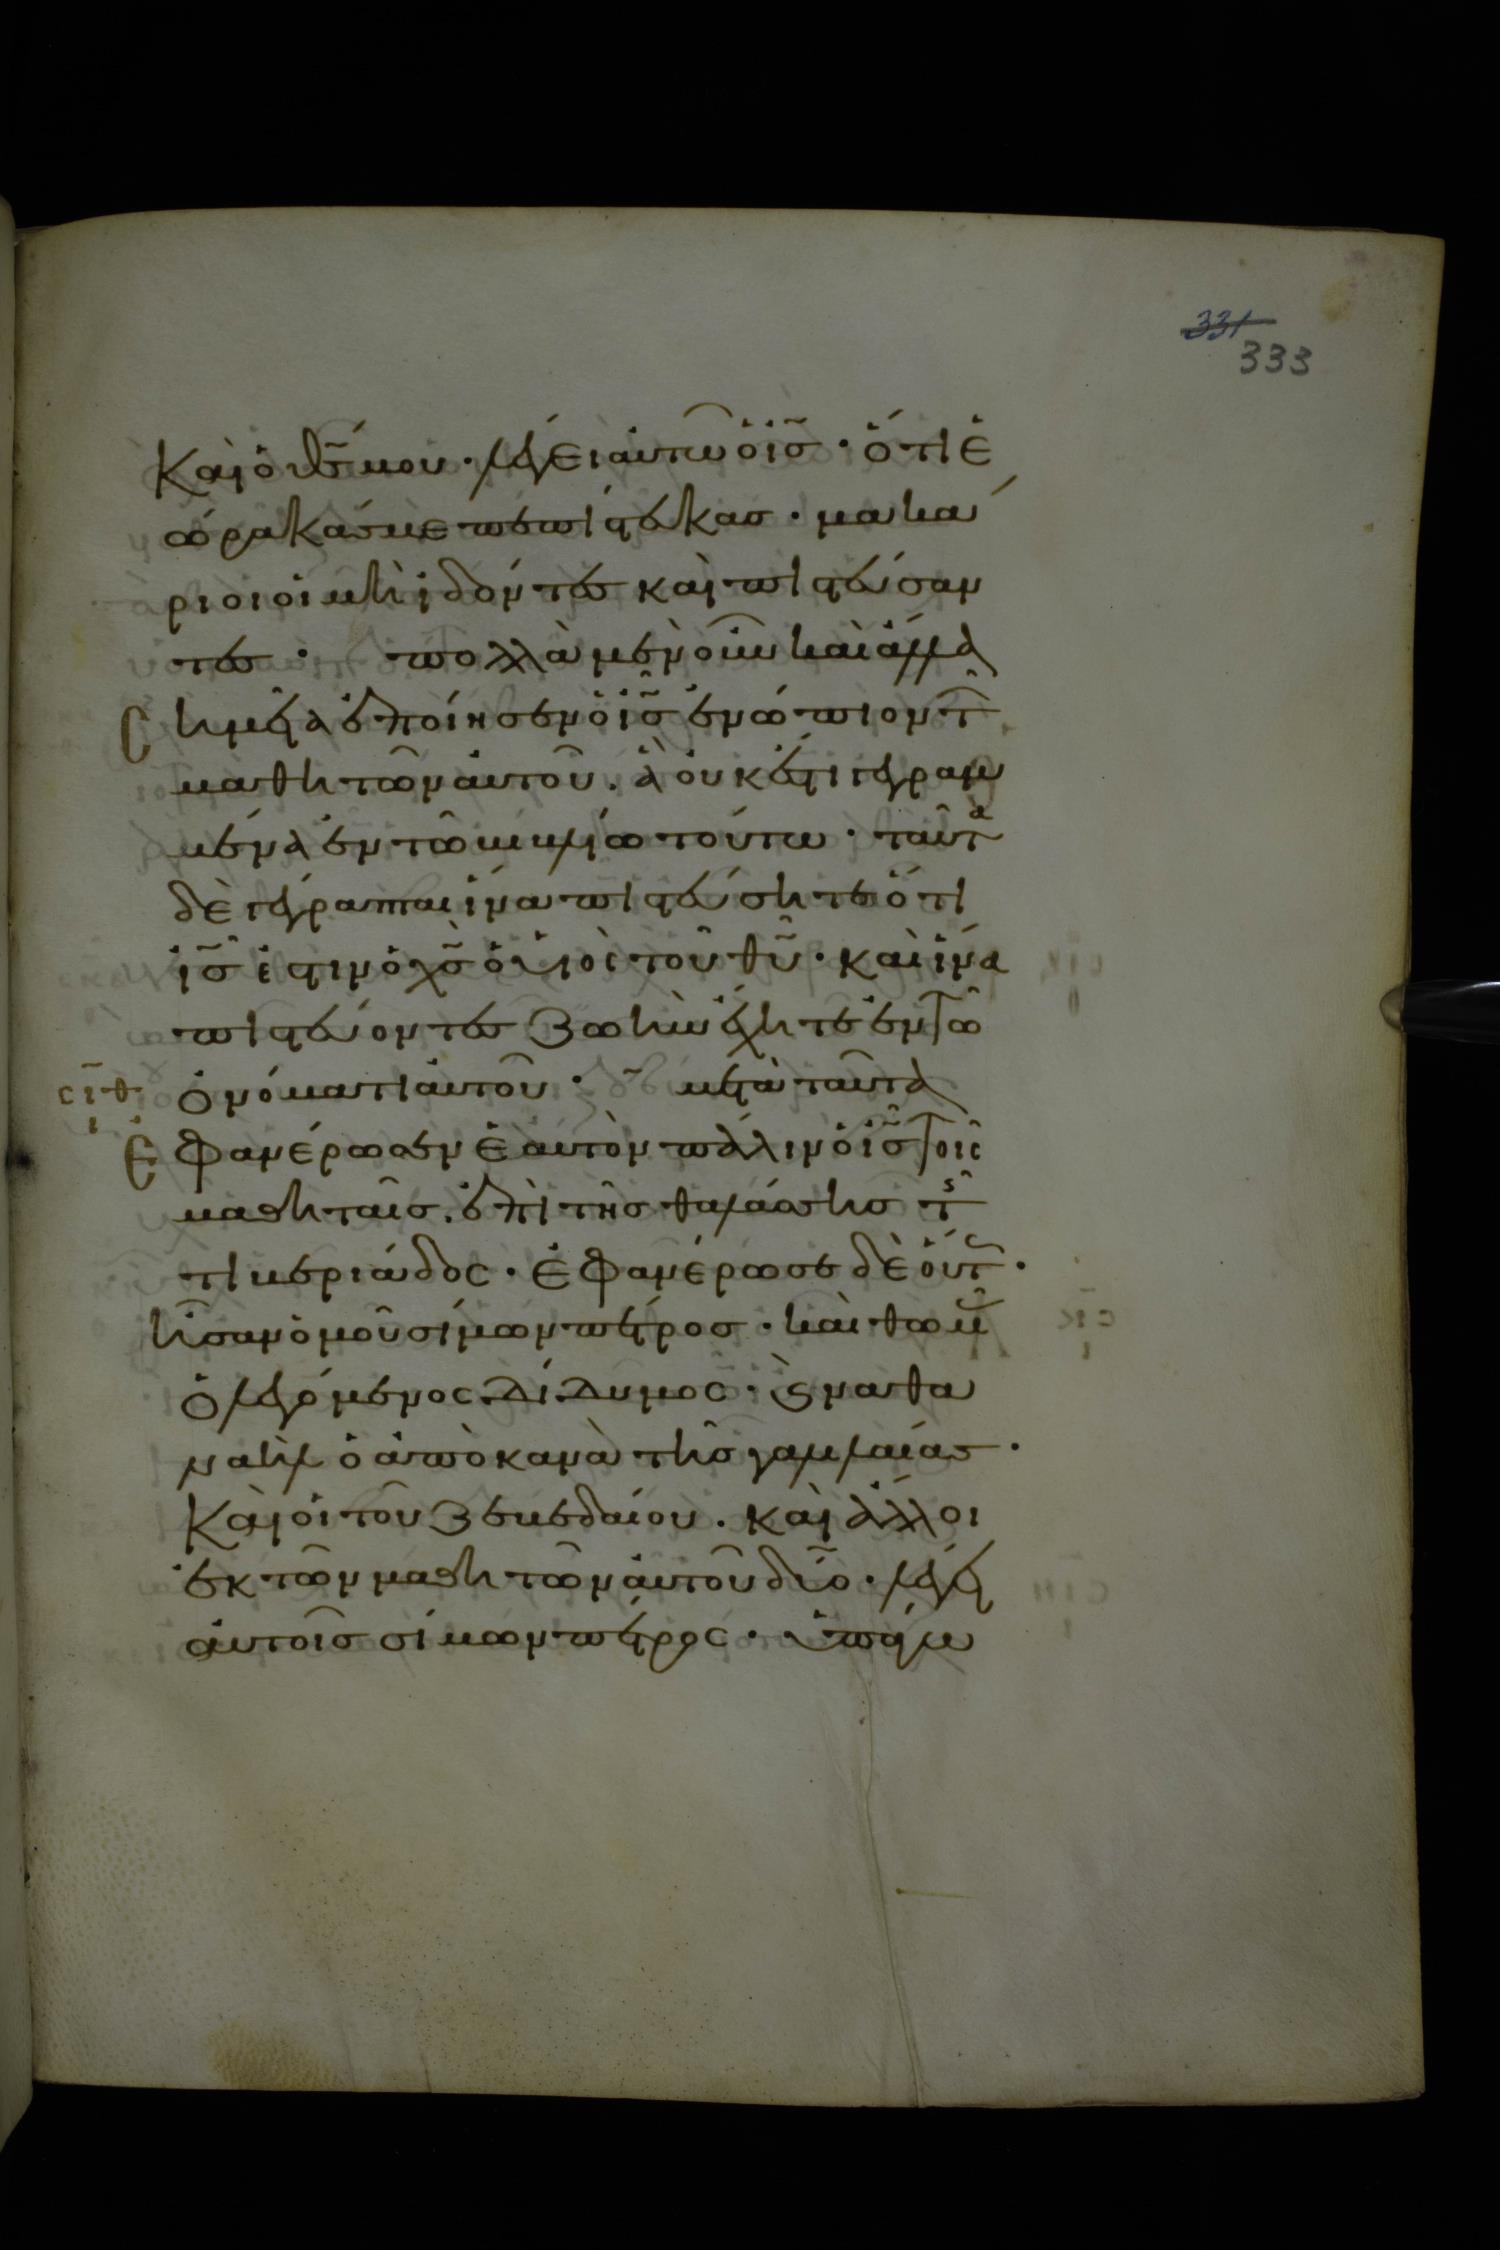 331
333
Καὶ ὁ θς̄ μου · λέγει αὐτῶ ὁ ις̄ · ὅτι ἑ
ώρακάς με πεπίστευκας · μακά
ριοι οἱ μὴ ἰδόντες καὶ πιστεύσαν
τες · πολλὰ μὲν οὖν καὶ ἄλλα
σημεῖα ἐποίησεν ὁ ις̄ ἐνώπιον τῶν
μαθητῶν αὐτοῦ · ἃ οὐκ ἔστι γεγραμ
μένα ἐν τῶ βιβλίω τούτω · ταῦτα
δὲ γέγραπται ἵνα πιστεύσητε ὅτι
ις̄ ἐστιν ὁ χς̄ ὁ υἱὸς τοῦ θῡ · καὶ ἵνα
πιστεύοντες ζωὴν ἔχητε ἐν τῶ
ὀνόματι αὐτοῦ · μετὰ ταῦτα
σιθ
ι
Ἐφανέρωσεν ἑαυτὸν πάλιν ὁ ις̄ τοῖς
μαθηταῖς · ἐπὶ τῆς θαλάσσης τῆς
τιβεριάδος · Ἐφανέρωσε δὲ οὕτως ·
ἦσαν ὁμοῦ σίμων πέτρος · καὶ θωμᾶς
ὁ λεγόμενος δίδυμος · καὶ ναθα
ναὴλ ὁ ἀπὸ κανὰ τῆς γαλιλαίας ·
Καὶ οἱ τοῦ ζεβεδαίου · καὶ ἄλλοι
ἐκ τῶν μαθητῶν αὐτοῦ δύο · λέγει
αὐτοῖς σίμων πέτρος · ὑπάγω